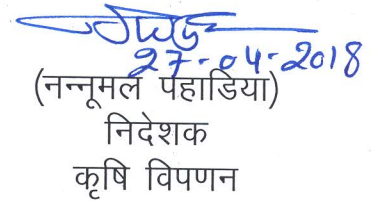 27-04-2018
(नन्नूमल पहाडिया)
निदेशक
कृषि विपणन